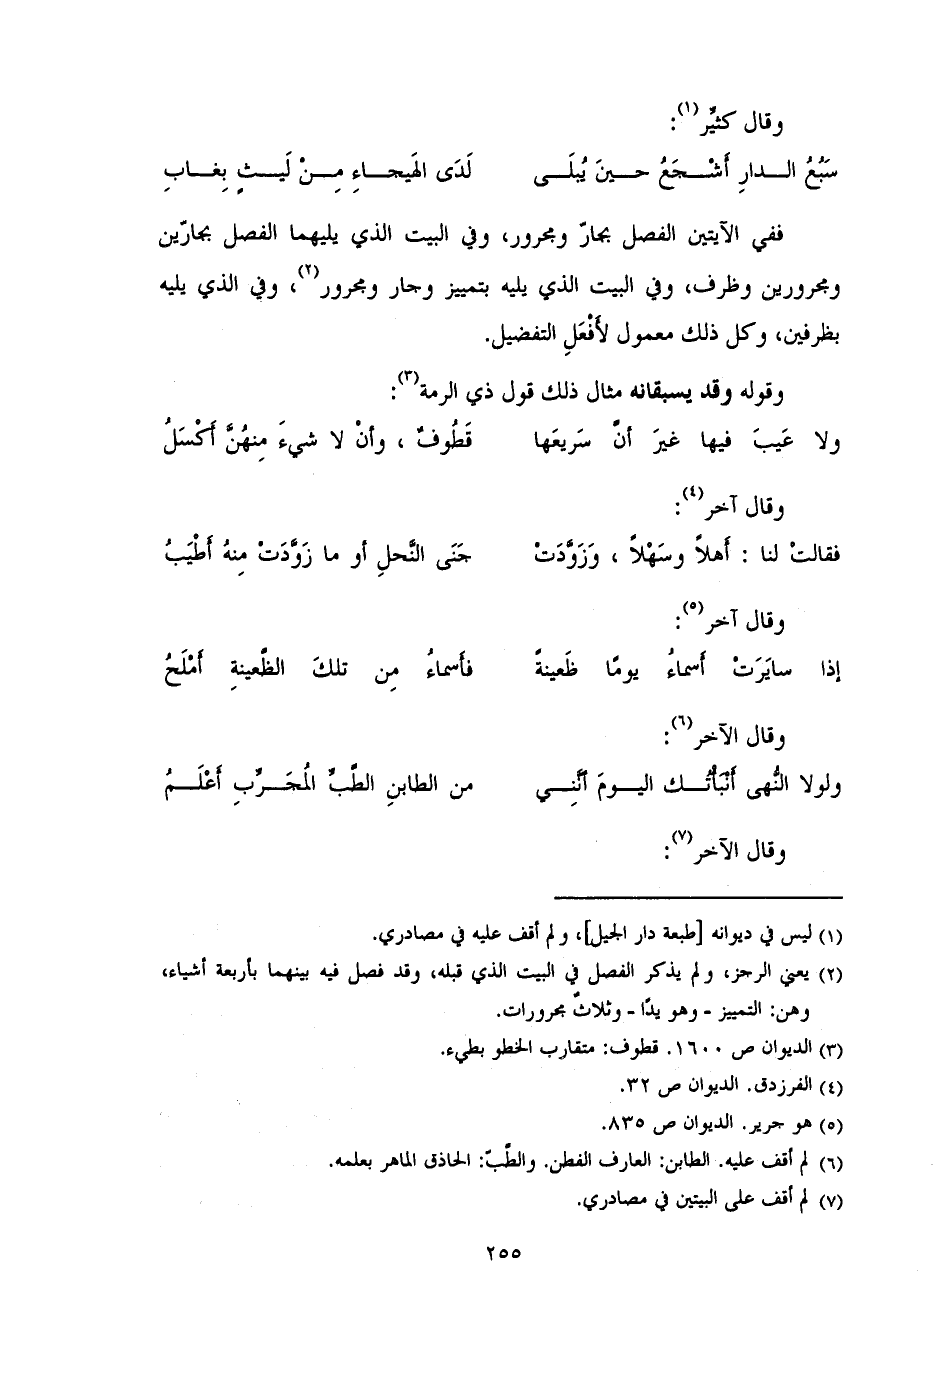 وقال كثيِّر(١):
سَبُعُ الـدارِ أَشْـجَعُ حـينَ يُبلَـى لَدَى الهَيجـاءِ مِـنْ لَيـثٍ بِغـابِ
ففي الآيتين الفصل بجارّ ومجرور، وفي البيت الذي يليهما الفصل بجارّين
ومجرورين وظرف، وفي البيت الذي يليه بتمييز وجار ومجرور(٢)، وفي الذي يليه
بظرفين، وكل ذلك معمول لأَفْعَلِ التفضيل.
وقوله وقد يسبقانه مثال ذلك قول ذي الرمة(٣):
ولا عَيبَ فيها غيرَ أنَّ سَريعَها قَطُوفٌ ، وأنْ لا شيءَ مِنهُنَّ أَكْسَلُ
وقال آخر(٤):
فقالتْ لنا : أَهلاً وسَهْلاً ، وَزَوَّدَتْ جَنَى النَّحلِ أو ما زَوَّدَتْ مِنهُ أَطْيَبُ
وقال آخر(٥):
إذا سايَرَتْ أَسماءُ يومًا ظَعينةً فأَسماءُ مِن تلكَ الظَّعينةِ أَمْلَحُ
وقال الآخر(٦):
ولولا النُّهى أَنْبَأْتُـك اليـومَ أَنَّنِـي من الطابنِ الطَّبِّ المُجَرِّبِ أَعْلَـمُ
وقال الآخر(٧):
(١) ليس في ديوانه [طبعة دار الجيل]، ولم أقف عليه في مصادري.
(٢) يعني الرجز، ولم يذكر الفصل في البيت الذي قبله، وقد فصل فيه بينهما بأربعة أشياء،
وهن: التمييز - وهو يدًا - وثلاثُ مجرورات.
(٣) الديوان ص ١٦٠٠. قطوف: متقارب الخطو بطيء.
(٤) الفرزدق. الديوان ص ٣٢.
(٥) هو جرير. الديوان ص ٨٣٥.
(٦) لم أقف عليه. الطابن: العارف الفطن. والطَّبّ: الحاذق الماهر بعلمه.
(٧) لم أقف على البيتين في مصادري.
٢٥٥